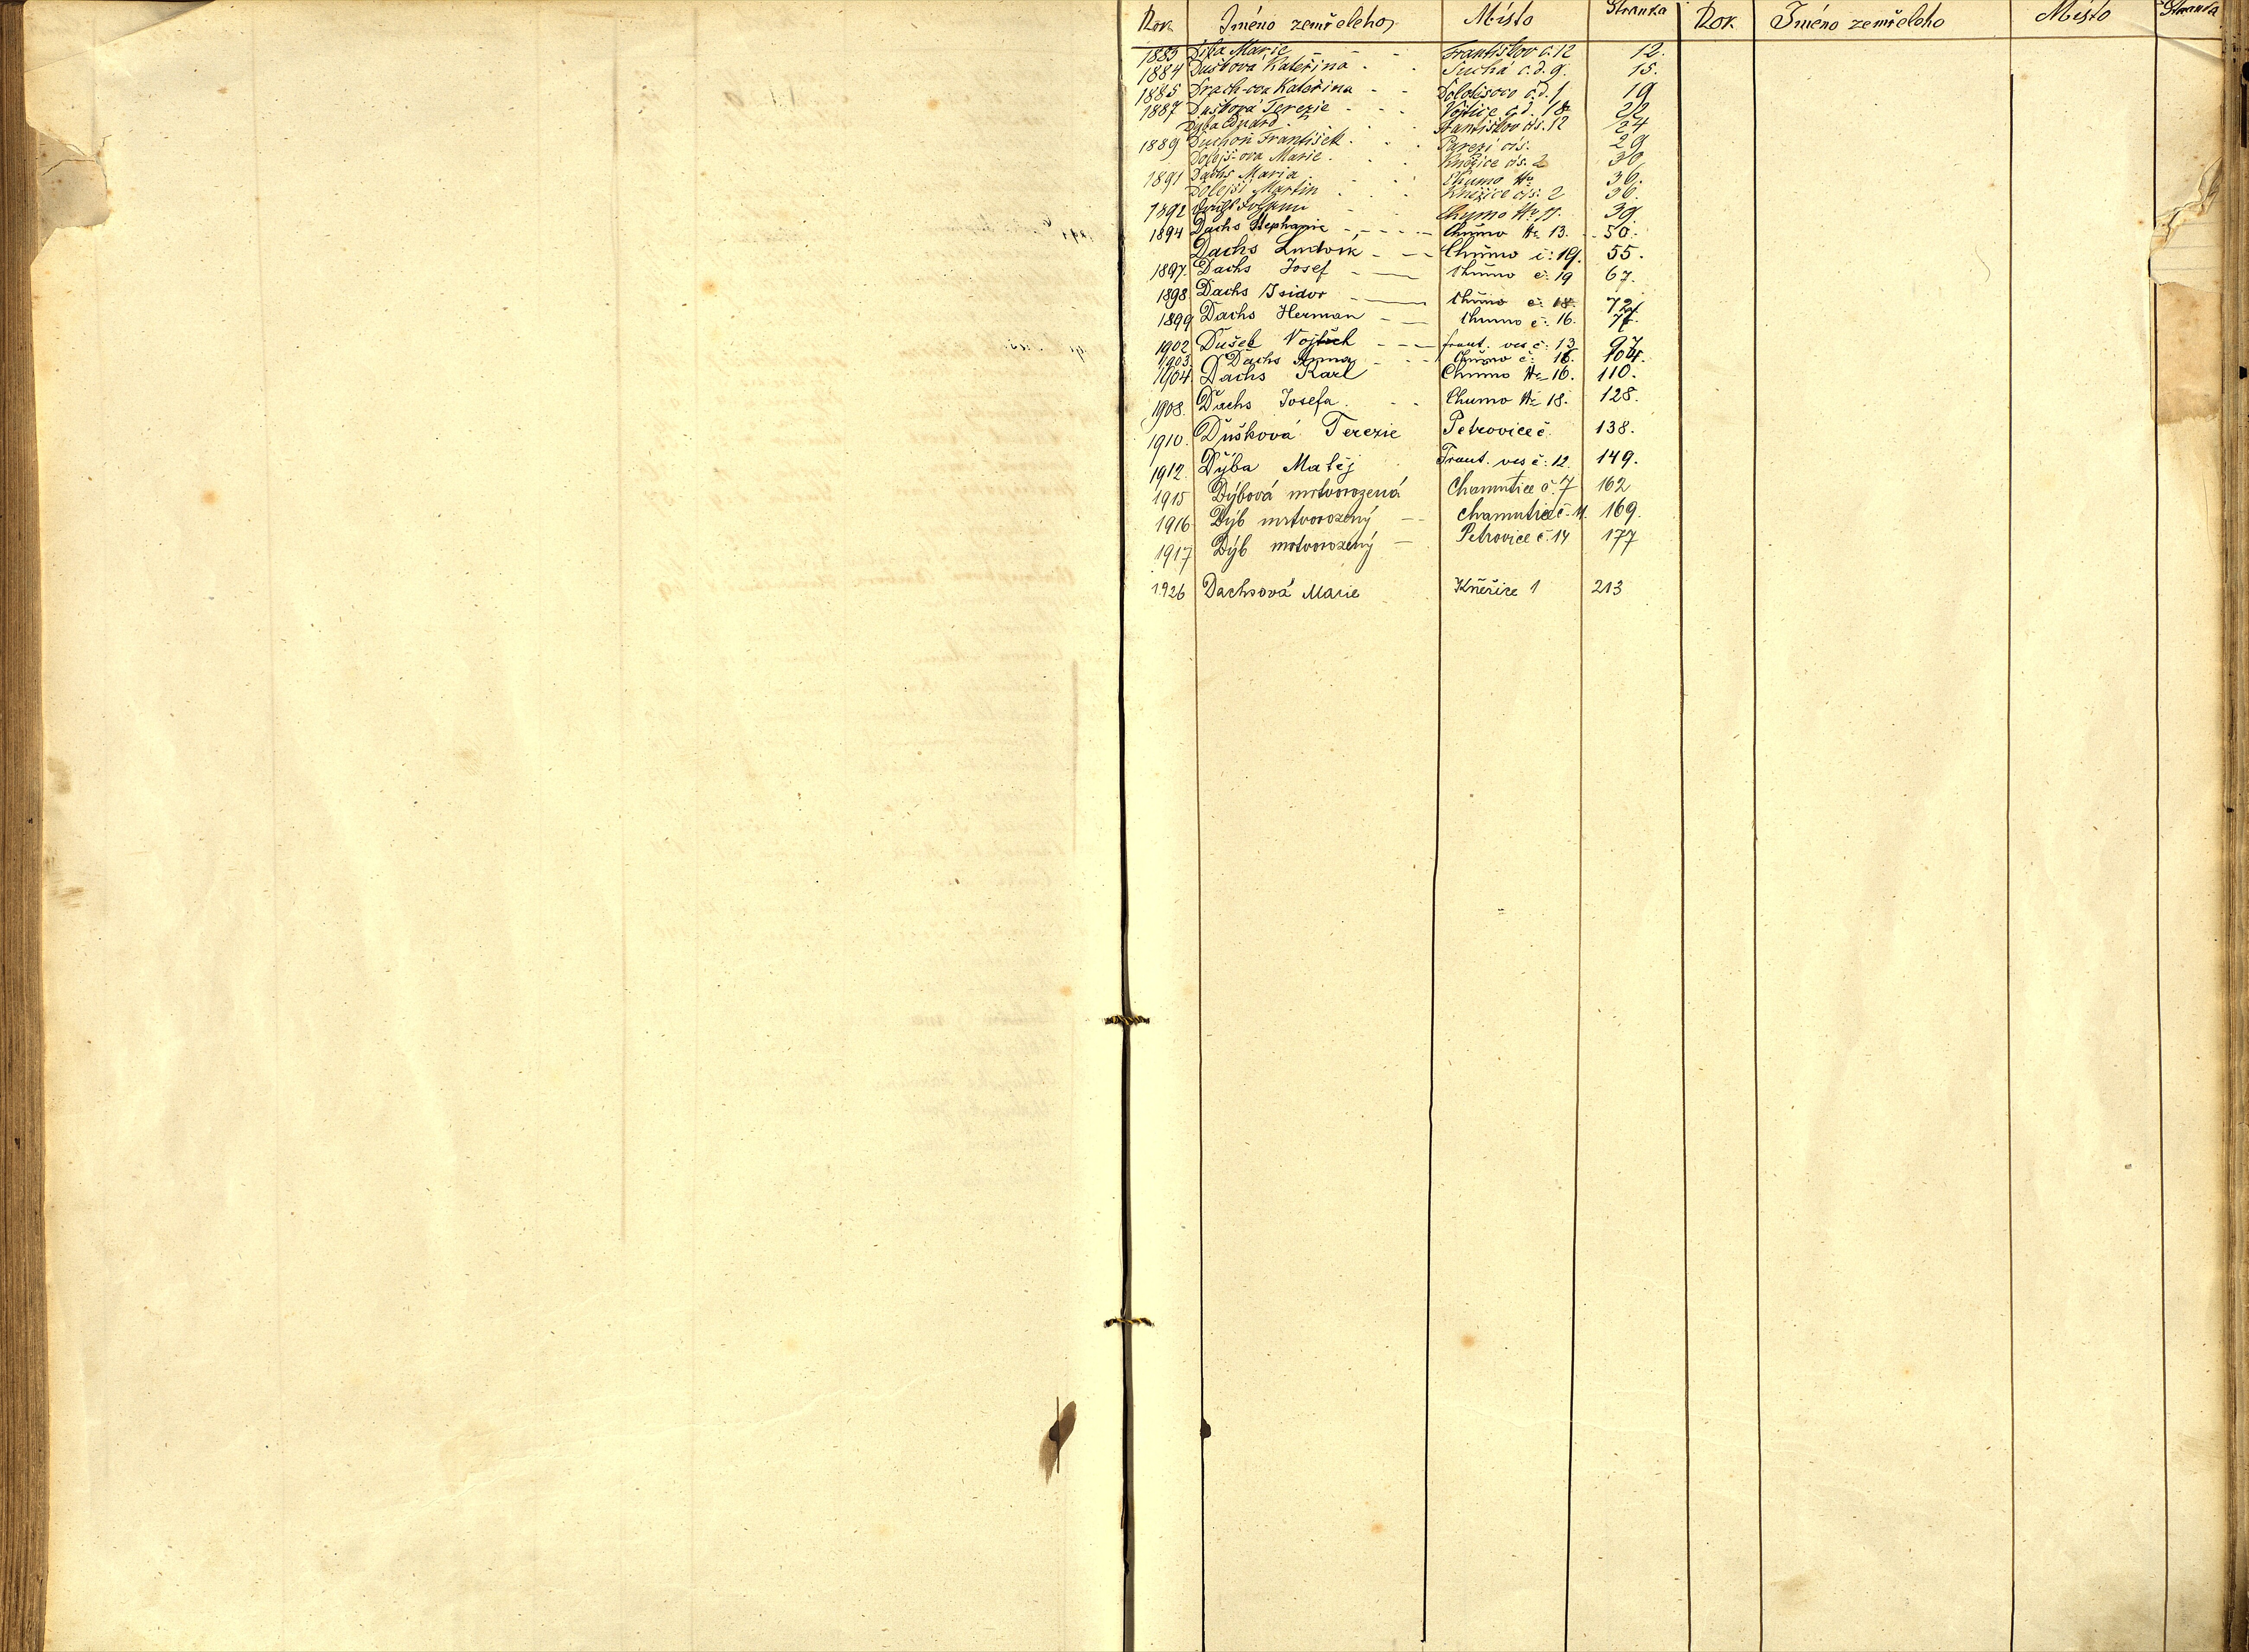 Rok Jméno zemřelého Místo Stránka Rok Jméno zemřelého Místo Stránka
1883 Diba Marie Františkov č. 12 12.
1884 Dušková Kateřina Suchá č. d. 9. 15.
1885 Drach-ova Kateřina č. d. 1 19
1887 Dušková Terezie Vojtice č. d. 18 22
Dyba Eduard Františkov čís. 12 24
1889 Duchoň František Parezí čís. 29
Dolejš-ova Marie Kněžice čís. 2 30
1891 Dachs Maria Chumo № 36.
Dolejší Martin Kněžice čís. 2 36.
1892 Chumo № 11. 39.
1894 Dachs Stephanie Chumo № 13. 50.
Dachs Ludvík Chumo č: 19. 55.
1897. Dachs Josef Chumo č: 19 67.
1898 Dachs Isidor Chumo č: 18. 72.
1899 Dachs Herman Chumo č: 16. 77.
1902 Dušek Vojtěch frant. ves č: 13 97
1903 Dachs Anna Chumo č: 16. 104.
1904 Dachs Karl Chumo № 16. 110.
1908. Dachs Josefa Chumo № 18. 128.
1910. Dušková Terezie Petrovice č. 138.
1912. Dyba Matěj Frant. ves č: 12. 149.
1915 Dýbová mrtvorozená Chamutice č. 7 162
1916 Dýb mrtvorozený Chamutice č. 11. 169.
1917 Dýb mrtvorozený Petrovice č. 14 177
1926 Dachsová Marie Kněžice 1 213